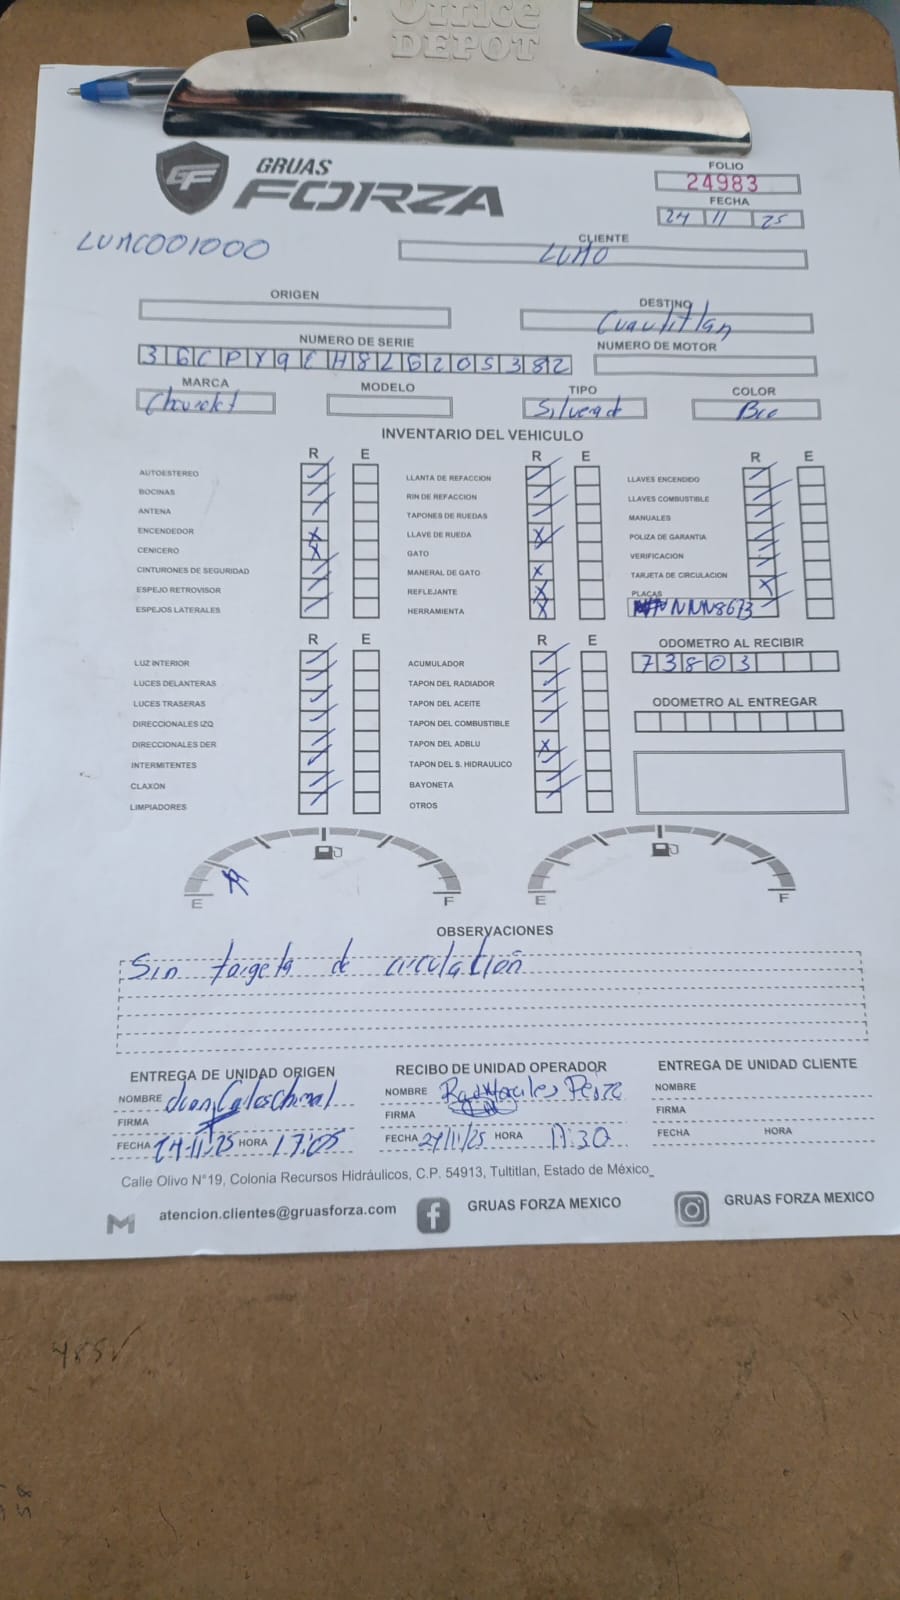 Office
DEPOT
GF
GRUAS
FORZA
FOLIO
24983
FECHA
24 11 25
LUMC001000
CLIENTE
LUMO
ORIGEN
DESTINO
Cuautitlan
NUMERO DE SERIE
3GCPY9CH8LG205382
NUMERO DE MOTOR
MARCA
MODELO
TIPO
COLOR
Silverad
Bco
INVENTARIO DEL VEHICULO
R E
R E
R E
AUTOESTEREO
BOCINAS
ANTENA
ENCENDEDOR
CENICERO
CINTURONES DE SEGURIDAD
ESPEJO RETROVISOR
ESPEJOS LATERALES
LLANTA DE REFACCION
RIN DE REFACCION
TAPONES DE RUEDAS
LLAVE DE RUEDA
GATO
MANERAL DE GATO
REFLEJANTE
HERRAMIENTA
LLAVES ENCENDIDO
LLAVES COMBUSTIBLE
MANUALES
POLIZA DE GARANTIA
VERIFICACION
TARJETA DE CIRCULACION
PLACAS
NNN8673
R E
R E
LUZ INTERIOR
LUCES DELANTERAS
LUCES TRASERAS
DIRECCIONALES IZQ
DIRECCIONALES DER
INTERMITENTES
CLAXON
LIMPIADORES
ACUMULADOR
TAPON DEL RADIADOR
TAPON DEL ACEITE
TAPON DEL COMBUSTIBLE
TAPON DEL ADBLU
TAPON DEL S. HIDRAULICO
BAYONETA
OTROS
ODOMETRO AL RECIBIR
73803
ODOMETRO AL ENTREGAR
E F
E F
OBSERVACIONES
Sin targeta de circulación
ENTREGA DE UNIDAD ORIGEN
NOMBRE Juan Carlos
FIRMA
FECHA 24-11-25 HORA 17:05
RECIBO DE UNIDAD OPERADOR
NOMBRE Morales
FIRMA
FECHA 24/11/25 HORA 17:30
ENTREGA DE UNIDAD CLIENTE
NOMBRE
FIRMA
FECHA HORA
Calle Olivo N°19, Colonia Recursos Hidráulicos, C.P. 54913, Tultitlan, Estado de México_
atencion.clientes@gruasforza.com
GRUAS FORZA MEXICO
GRUAS FORZA MEXICO